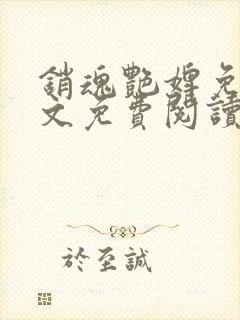 銷魂艷婢免
文免費閱讀
於至誠